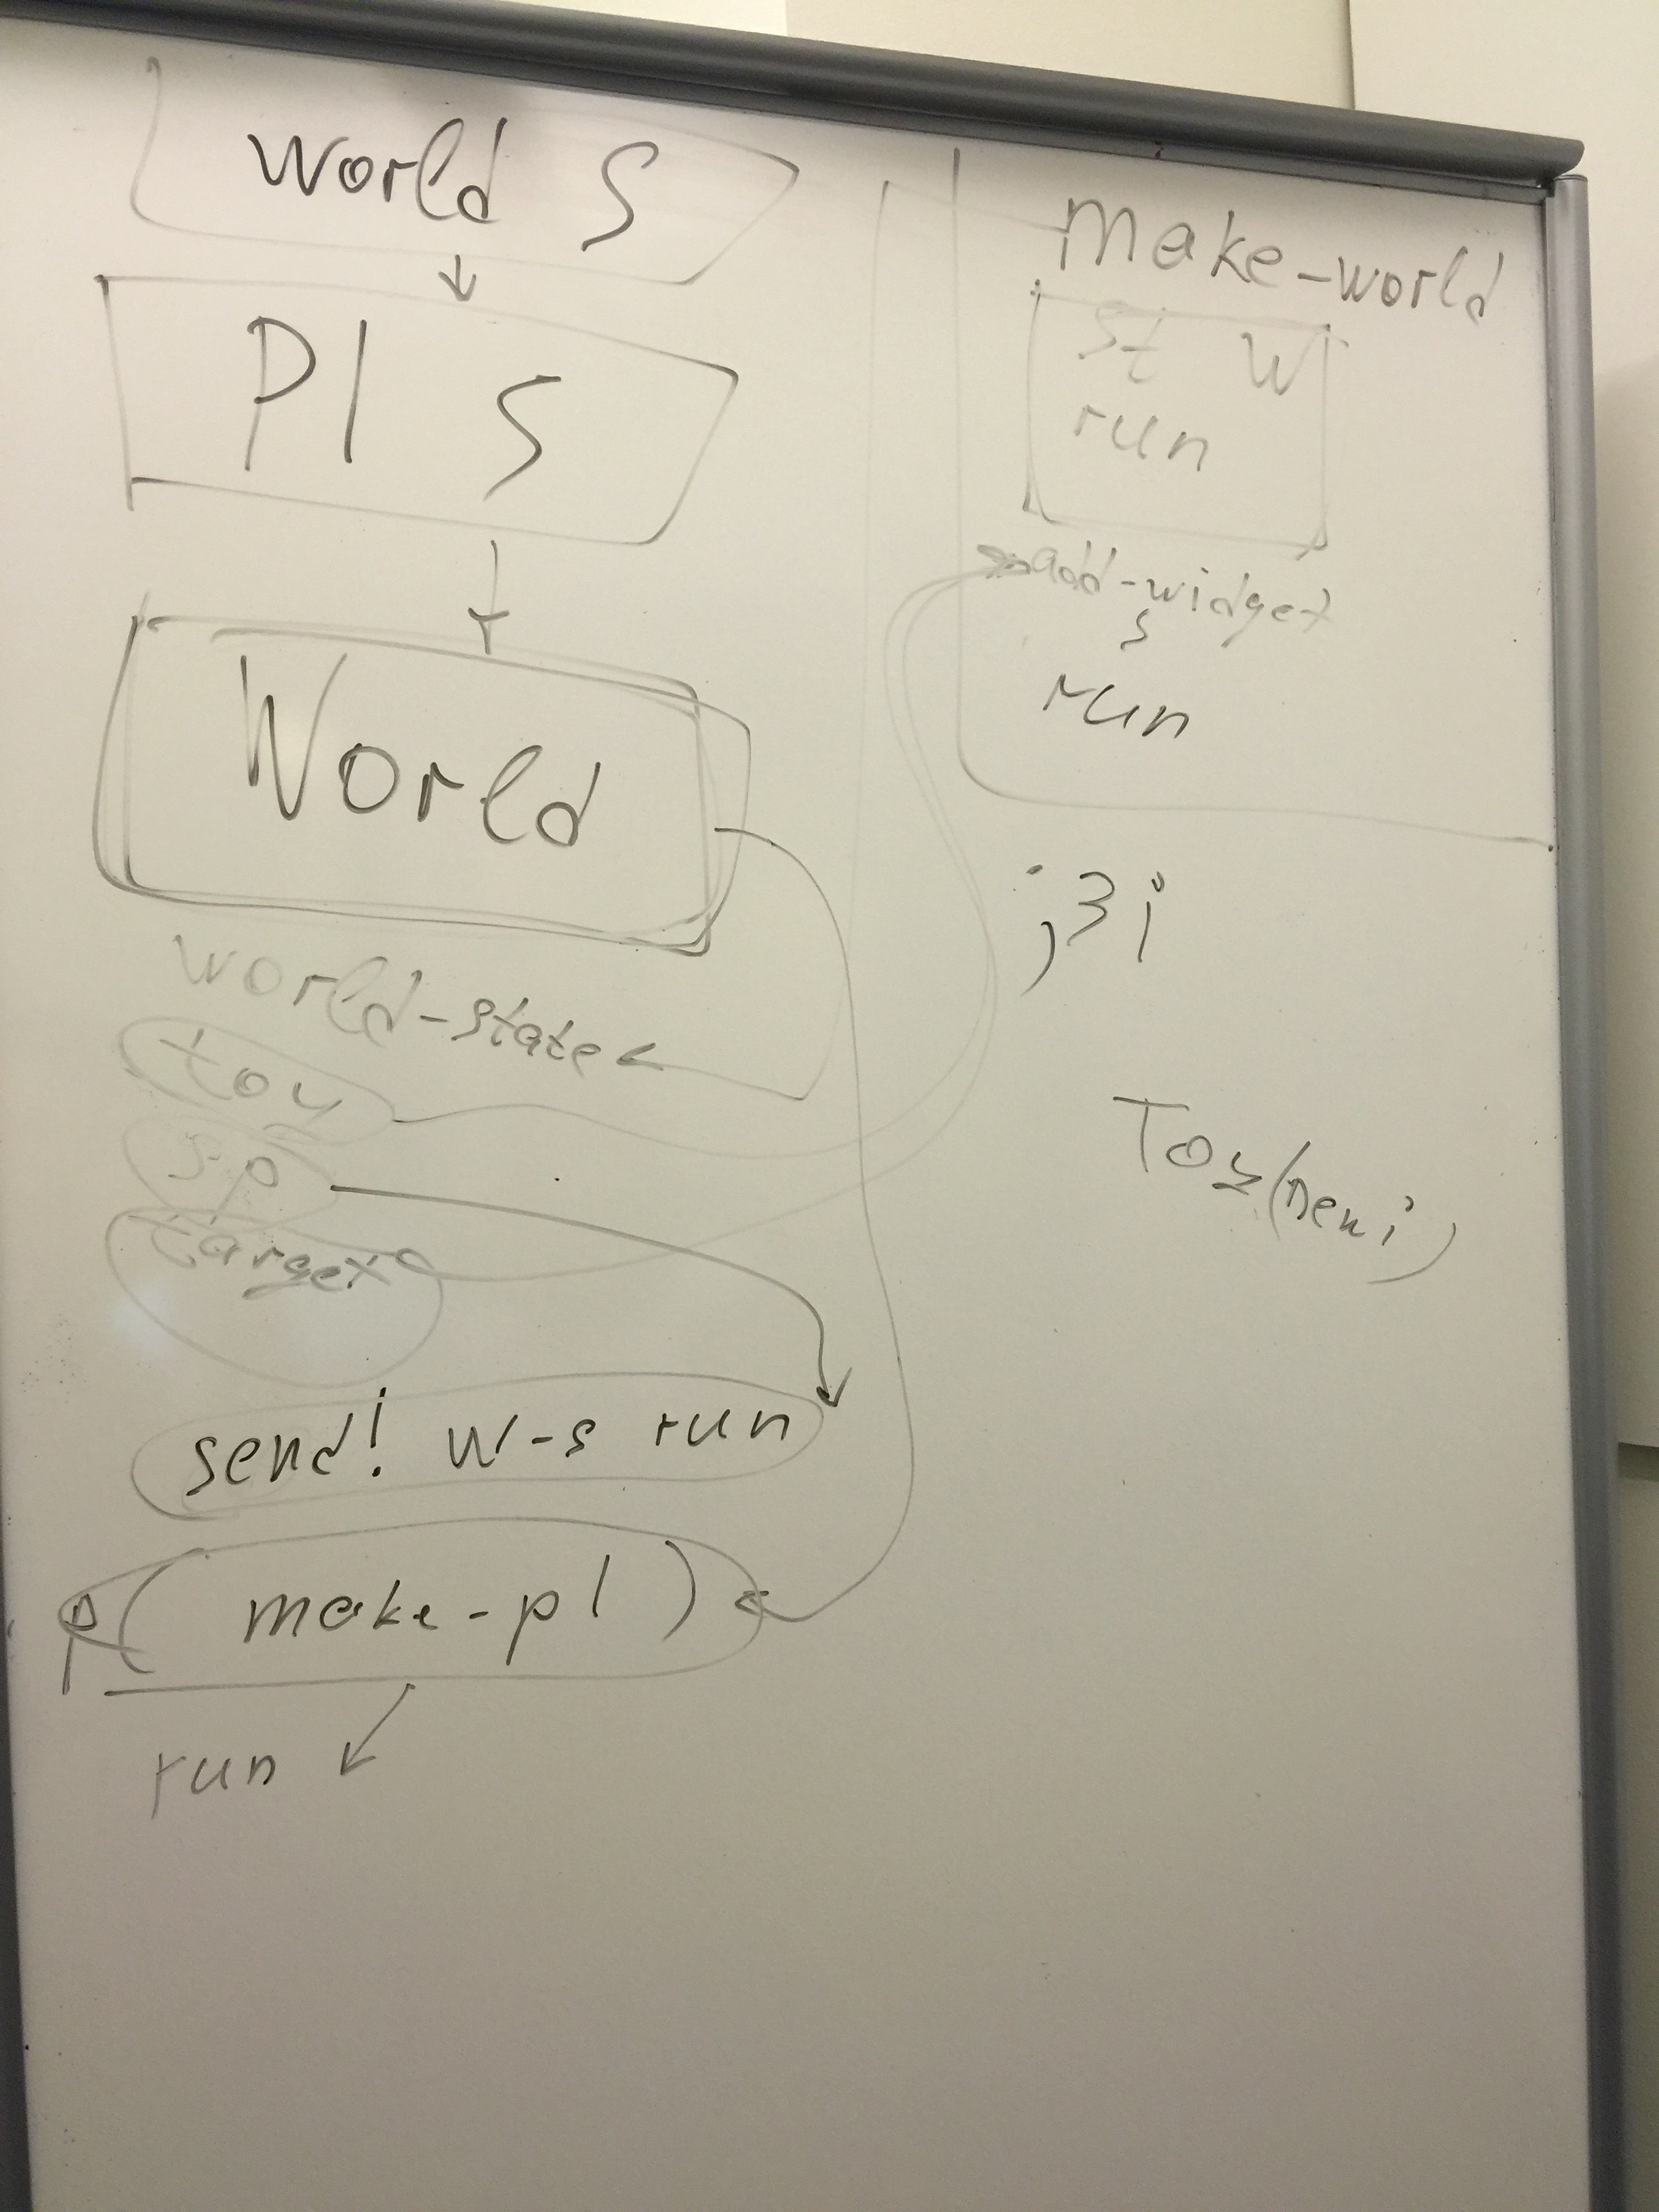 world S
Pl S
World
world-state
toy
s-p
target
send! w-s run
p( make-pl )
run
make-world
st w
run
add-widget
s
run